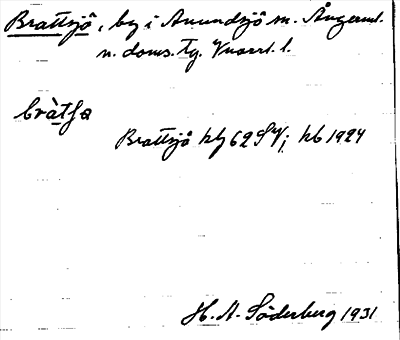 Brattsjö, by i Anundsjö sn. Ångerml.
n. doms. tg. Vnorrl. l.
bràtʃa
Brattsjö kbl 62 SV; kb 1924
H. A. Söderberg 1931